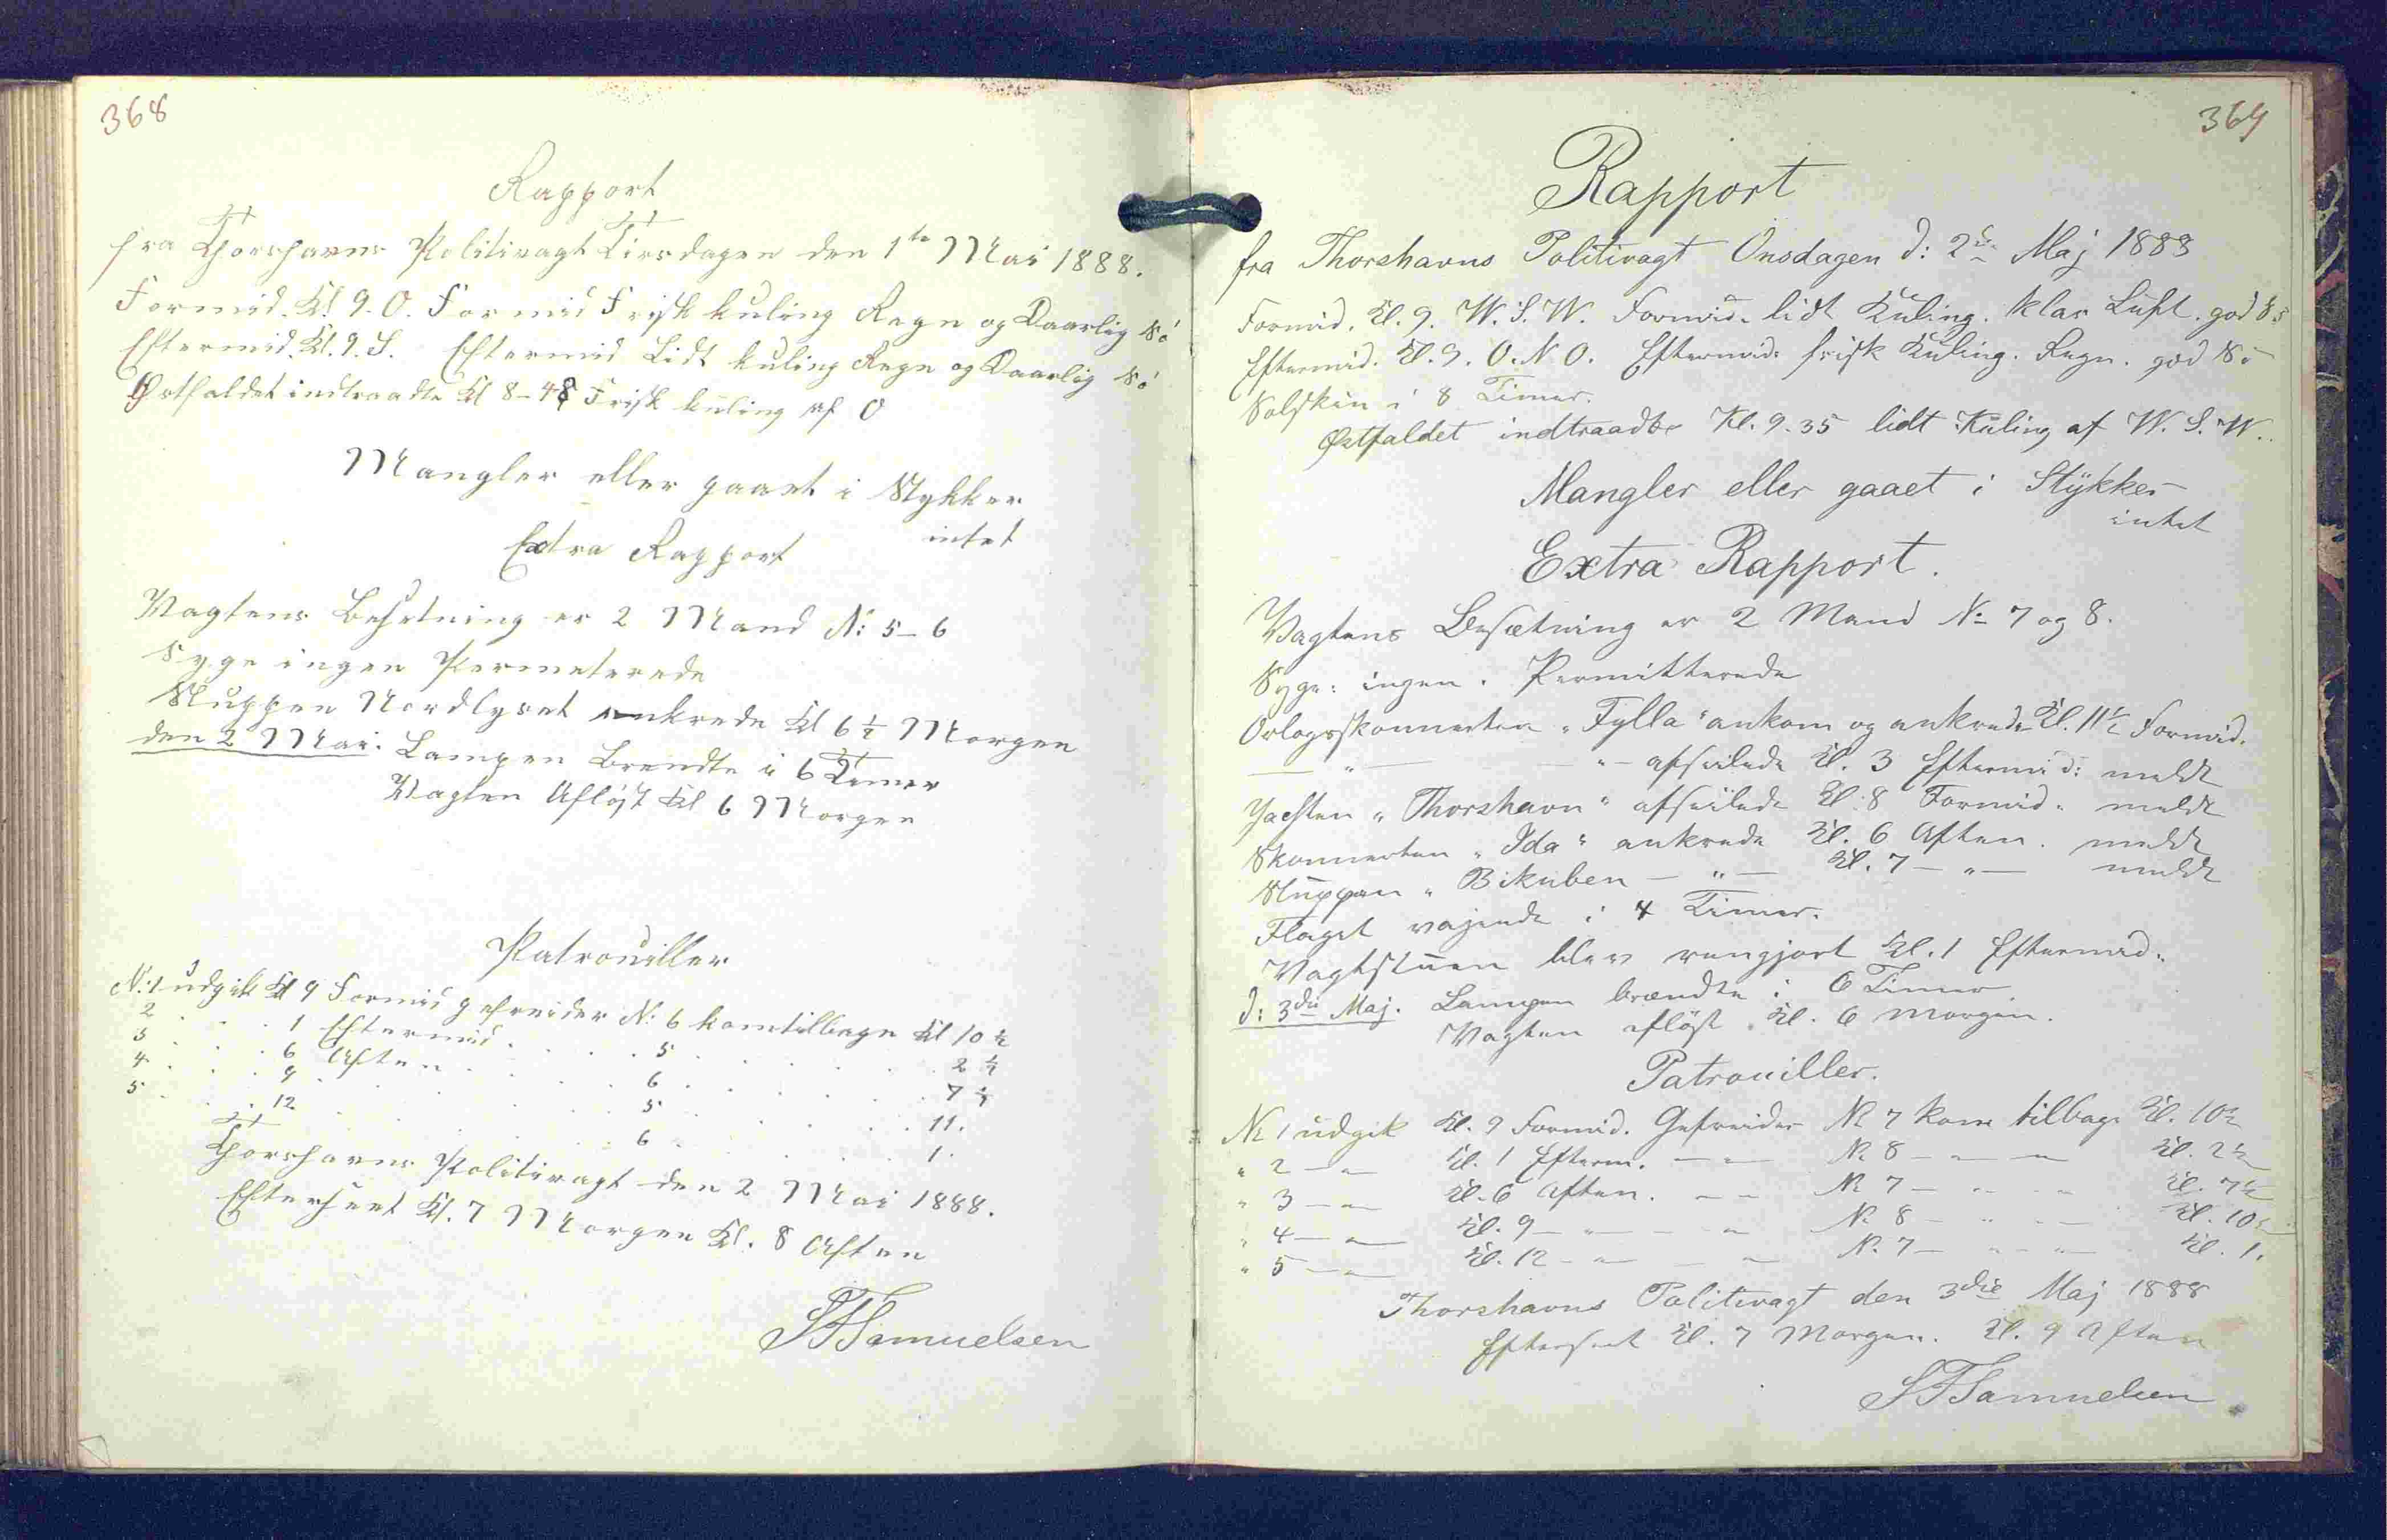 368
Rapport
fra Thorshavns Politivagt Tirsdagen den 1te Mai 1888.
Formid. Kl. 9. O. Formid Frisk kuling Regn og Daarlig Sö
Eftermid. Kl. 9. S. Eftermid Lidt kuling Regn og Daarlig Sö
Østfaldet indtraadte Kl 8-48 Frisk kuling af O
Mangler eller gaaet i Stykker
intet
Extra Rapport
Vagtens Besetning er 2 Mand N: 5-6
Syge ingen Permeterede
Sluppen Nordlyset ankrede Kl 6½ Morgen
den 2 Mai. Lampen Brendte i 6 Timer
Vagten Afløst Kl 6 Morgen
Patrouiller
N: 1 udgik Kl 9 Formid gefreider N: 6 kom tilbage Kl 10½
2 . . . 1 Eftermid . . . 5 . . . 2½
3 . . . 6 Aften . . . 6 . . . 7½
4 . . . 9 . . . 5 . . . 11.
5 . . . 12 . . . 6 . . . 1.
Thorshavns Politivagt den 2 Mai 1888.
Efterseet Kl. 7 Morgen Kl. 8 Aften
SFSamuelsen
369
Rapport
fra Thorshavns Politivagt Onsdagen d: 2de Maj 1888
Formid. Kl. 9. W.S.W. Formid. lidt Kuling. klar Luft. god Sö
Eftermid. Kl. 9. O.N.O. Eftermid: frisk Kuling. Regn. god Sö
Solskin i 8 Timer.
Østfaldet indtraadte Kl. 9.35 lidt Kuling af W.S.W.
Mangler eller gaaet i Stykker
intet
Extra Rapport.
Vagtens Besætning er 2 Mand No 7 og 8.
Syge: ingen. Permitterede
Orlogsskonnerten „Fylla" ankom og ankrede Kl. 11½ Formid.
— " — " — afseilede Kl. 3 Eftermid: meldt
Jachten „Thorshavn" afseilede Kl. 8 Formid. meldt
Skonnerten „Ida" ankrede Kl. 6 Aften. meldt
Sluppen „Bikuben — " — Kl. 7 — " — meldt
Flaget vajende i 4 Timer.
Vagtstuen blev rengjort Kl. 1 Eftermid.
d: 3die Maj. Lampen brændte i 6 Timer
Vagten afløst Kl. 6 Morgen.
Patrouiller.
No 1 udgik Kl. 9 Formid. Gefreider No 7 kom tilbage Kl. 10½
" 2 — " — Kl. 1 Efterm. — " — No 8 — " — " — Kl. 2½
" 3 — " — Kl. 6 Aften. — " — No 7 — " — " — Kl. 7½
" 4 — " — Kl. 9 — " — " — No 8 — " — " — Kl. 10½
" 5 — " — Kl. 12 — " — " — No 7 — " — " — Kl. 1.
Thorshavns Politivagt den 3die Maj 1888
Efterseet Kl. 7 Morgen. Kl. 9 Aften
SFSamuelsen